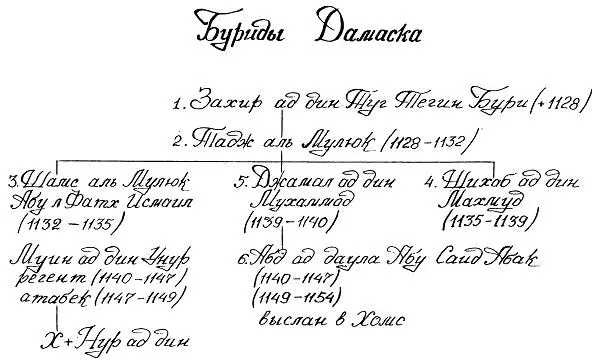 Буриды Дамаска
1. Захир ад дин Туг Тегин Бури (+1128)
2. Тадж аль Мулюк (1128-1132)
3. Шамс аль Мулюк
Абу л Фатх Исмаил
(1132-1135)
5. Джамал ад дин
Мухаммад
(1139-1140)
4. Шихаб ад дин
Махмуд
(1135-1139)
Муин ад дин Унур
регент (1140-1147)
атабек (1147-1149)
6. Абд ад даула Абу Саид Абак
(1140-1147)
(1149-1154)
выслан в Хомс
X + Нур ад дин